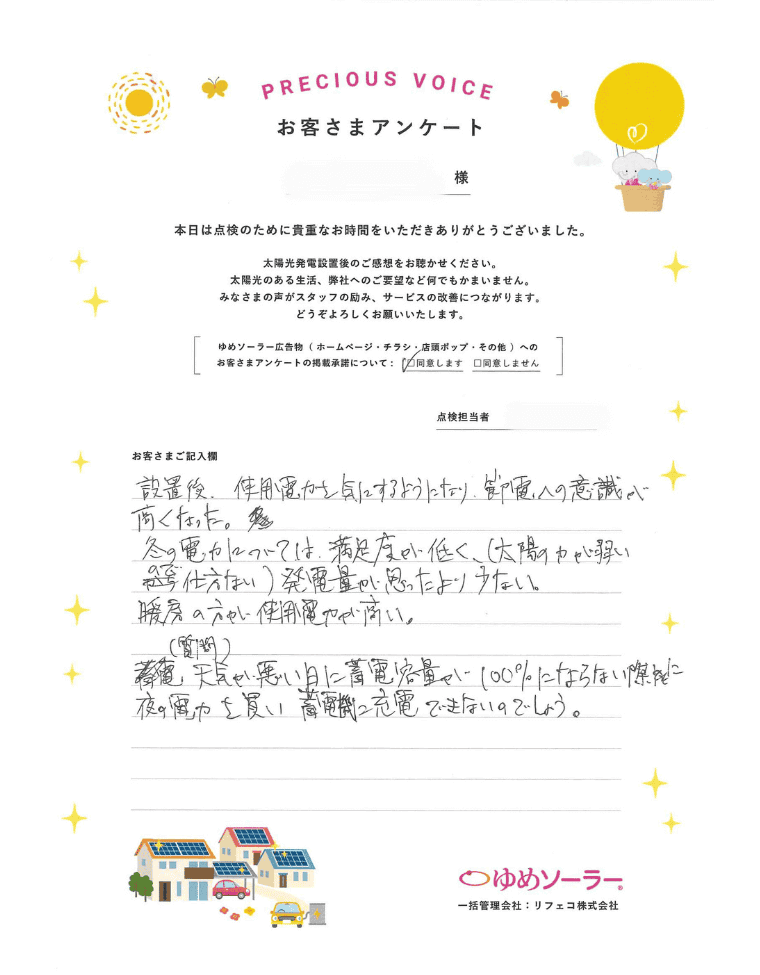 PRECIOUS VOICE
お客さまアンケート
様
本日は点検のために貴重なお時間をいただきありがとうございました。
太陽光発電設置後のご感想をお聴かせください。
太陽光のある生活、弊社へのご要望など何でもかまいません。
みなさまの声がスタッフの励み、サービスの改善につながります。
どうぞよろしくお願いいたします。
ゆめソーラー広告物（ ホームページ・チラシ・店頭ポップ・その他 ）への
お客さまアンケートの掲載承諾について： □同意します □同意しません
点検担当者
お客さまご記入欄
設置後、使用電力を気にするようになり、節電への意識が
高くなった。
冬の電力については、満足度が低く、(太陽の力が弱い
ので仕方ない) 発電量が思ったより少ない。
暖房の方が使用電力が高い。
(質問)
天気が悪い日に蓄電容量が100%にならない際に
夜の電力を買い蓄電機に充電できないのでしょう。
ゆめソーラー®
一括管理会社：リフェコ株式会社